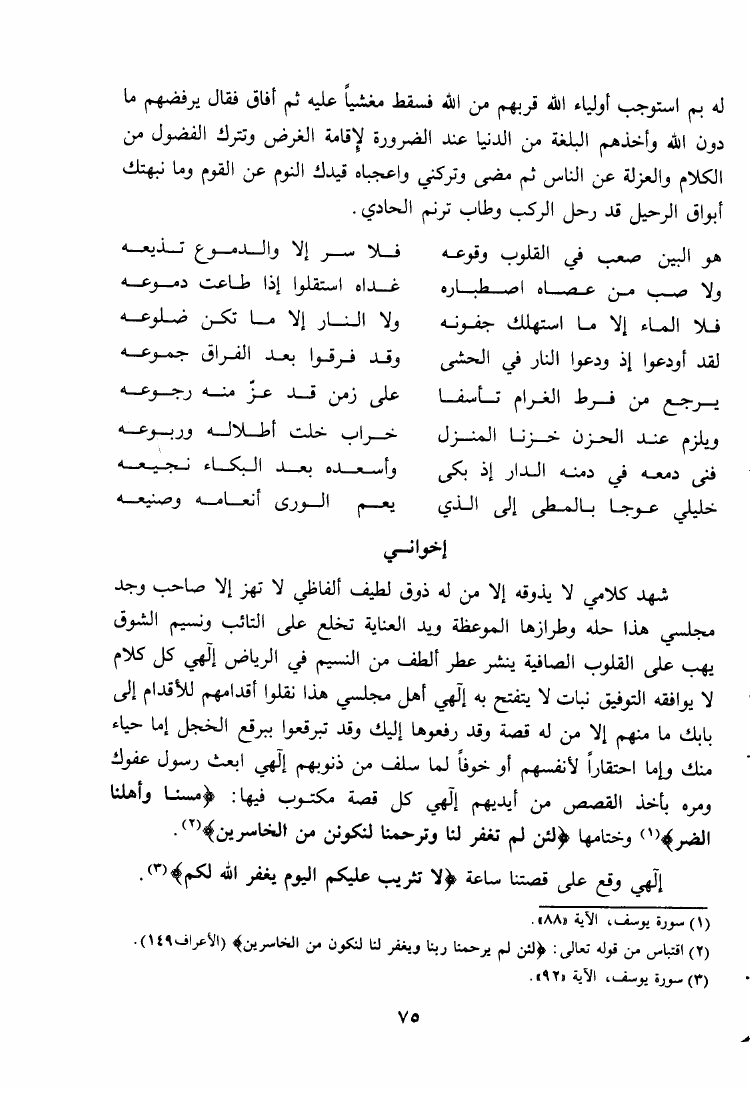 له بم استوجب أولياء الله قربهم من الله فسقط مغشياً عليه ثم أفاق فقال يرفضهم ما
دون الله وأخذهم البلغة من الدنيا عند الضرورة لإقامة الغرض وتترك الفضول من
الكلام والعزلة عن الناس ثم مضى وتركني واعجباه قيدك النوم عن القوم وما نبهتك
أبواق الرحيل قد رحل الركب وطاب ترنم الحادي.
هو البين صعب في القلوب وقوعه فلا سر إلا والدموع تذيعه
ولا صب من عصاه اصطباره غداه استقلوا إذا طاعت دموعه
فلا الماء إلا ما استهلك جفونه ولا النار إلا ما تكن ضلوعه
لقد أودعوا إذ ودعوا النار في الحشى وقد فرقوا بعد الفراق جموعه
يرجع من فرط الغرام تأسفا على زمن قد عزّ منه رجوعه
ويلزم عند الحزن خزنا المنزل خراب خلت أطلاله وربوعه
فنى دمعه في دمنه الدار إذ بكى وأسعده بعد البكاء نجيعه
خليلي عوجا بالمطى إلى الذي يعم الورى أنعامه وصنيعه
إخواني
شهد كلامي لا يذوقه إلا من له ذوق لطيف ألفاظي لا تهز إلا صاحب وجد
مجلسي هذا حله وطرازها الموعظة ويد العناية تخلع على التائب ونسيم الشوق
يهب على القلوب الصافية ينشر عطر ألطف من النسيم في الرياض إلهي كل كلام
لا يوافقه التوفيق نبات لا يتفتح به إلهي أهل مجلسي هذا نقلوا أقدامهم للأقدام إلى
بابك ما منهم إلا من له قصة وقد رفعوها إليك وقد تبرقعوا ببرقع الخجل إما حياء
منك وإما احتقاراً لأنفسهم أو خوفاً لما سلف من ذنوبهم إلهي ابعث رسول عفوك
ومره بأخذ القصص من أيديهم إلهي كل قصة مكتوب فيها: ﴿مسنا وأهلنا
الضر﴾(١) وختامها ﴿لئن لم تغفر لنا وترحمنا لنكونن من الخاسرين﴾(٢).
إلهي وقع على قصتنا ساعة ﴿لا تثريب عليكم اليوم يغفر الله لكم﴾(٣).
(١) سورة يوسف، الآية «٨٨».
(٢) اقتباس من قوله تعالى: ﴿لئن لم يرحمنا ربنا ويغفر لنا لنكون من الخاسرين﴾ (الأعراف١٤٩).
(٣) سورة يوسف، الآية «٩٢».
٧٥